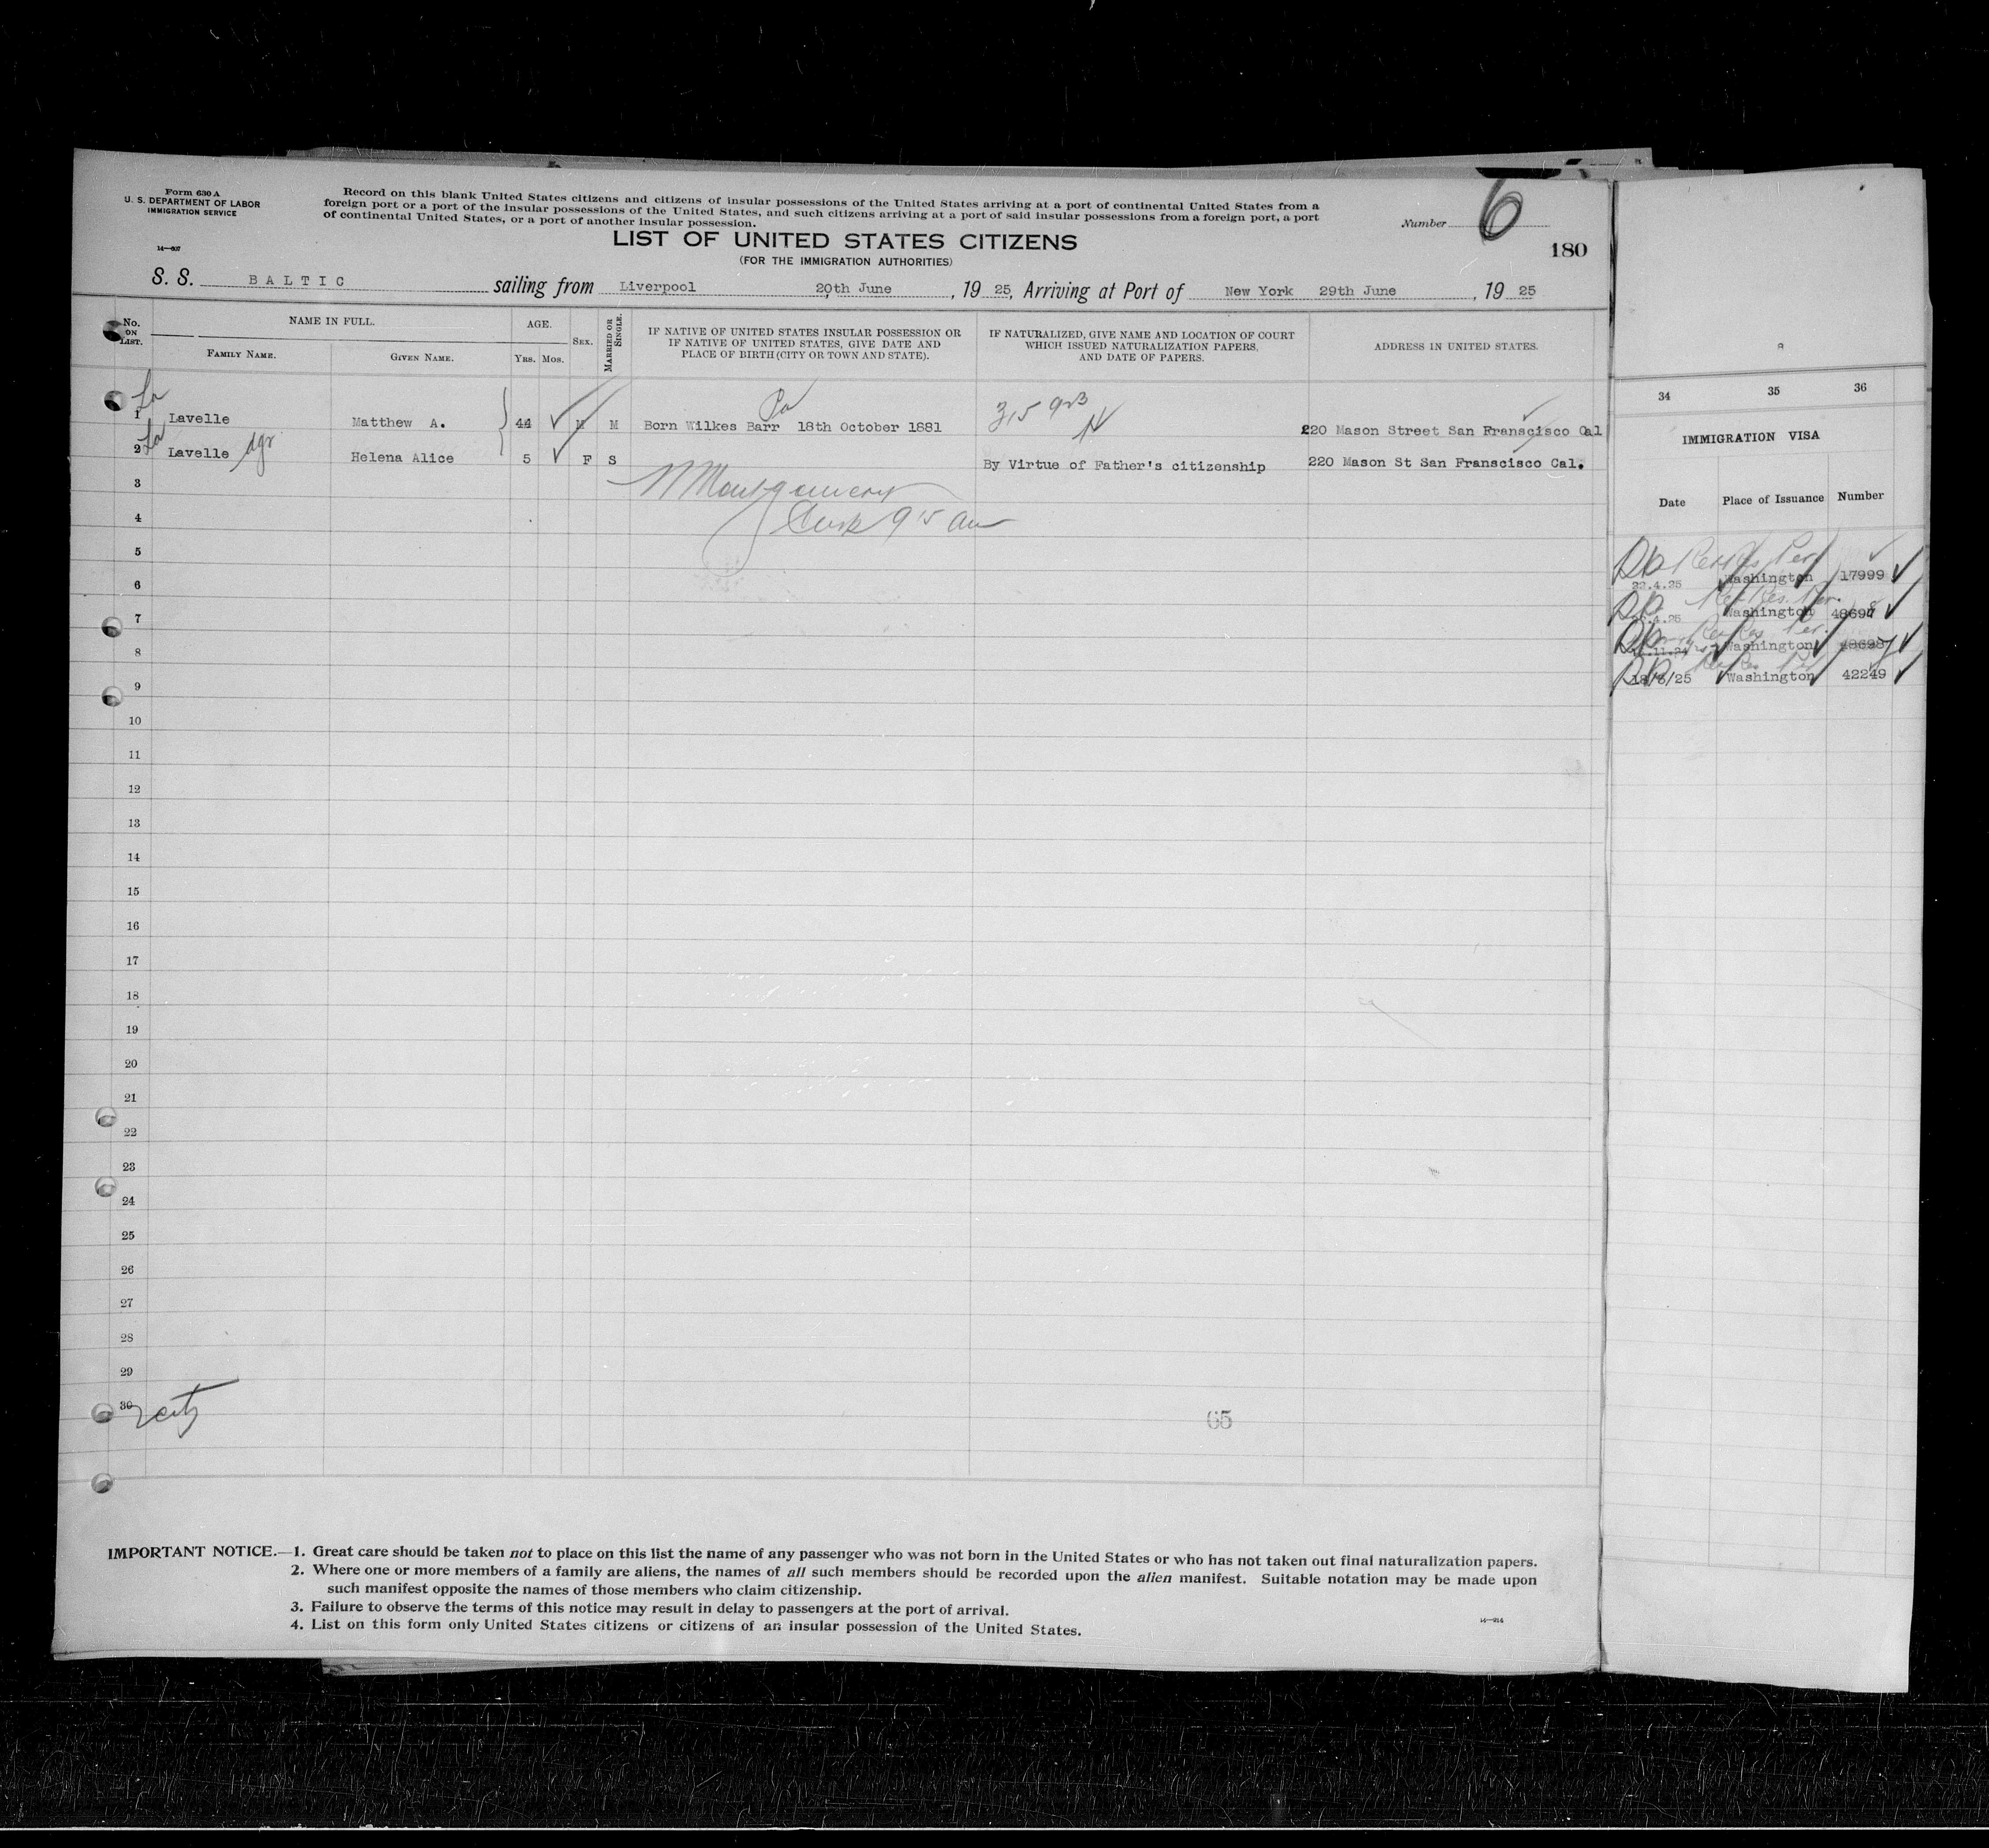 Form 630 A
U. S. DEPARTMENT OF LABOR
IMMIGRATION SERVICE
14—607
Record on this blank United States citizens and citizens of insular possessions of the United States arriving at a port of continental United States from a
foreign port or a port of the insular possessions of the United States, and such citizens arriving at a port of said insular possessions from a foreign port, a port
of continental United States, or a port of another insular possession.
Number 6
180
LIST OF UNITED STATES CITIZENS
(FOR THE IMMIGRATION AUTHORITIES)
S. S. BALTIC sailing from Liverpool 20th June, 19 25, Arriving at Port of New York 29th June, 19 25
No. ON LIST.
NAME IN FULL.
FAMILY NAME.
GIVEN NAME.
AGE.
YRS. MOS.
SEX.
MARRIED OR SINGLE.
IF NATIVE OF UNITED STATES INSULAR POSSESSION OR
IF NATIVE OF UNITED STATES, GIVE DATE AND
PLACE OF BIRTH (CITY OR TOWN AND STATE).
IF NATURALIZED, GIVE NAME AND LOCATION OF COURT
WHICH ISSUED NATURALIZATION PAPERS,
AND DATE OF PAPERS.
ADDRESS IN UNITED STATES.
La
Pa
1 Lavelle Matthew A. 44 M M Born Wilkes Barr 18th October 1881 220 Mason Street San Franscisco Cal
La
2 Lavelle Helena Alice 5 F S By Virtue of Father's citizenship 220 Mason St San Franscisco Cal.
3
Montgomery
4
5
6
7
8
9
10
11
12
13
14
15
16
17
18
19
20
21
22
23
24
25
26
27
28
29
30
65
34 35 36
IMMIGRATION VISA
Date Place of Issuance Number
22.4.25 Washington 17999
Washington
Washington
Washington 42249
IMPORTANT NOTICE.—1. Great care should be taken not to place on this list the name of any passenger who was not born in the United States or who has not taken out final naturalization papers.
2. Where one or more members of a family are aliens, the names of all such members should be recorded upon the alien manifest. Suitable notation may be made upon
such manifest opposite the names of those members who claim citizenship.
3. Failure to observe the terms of this notice may result in delay to passengers at the port of arrival.
4. List on this form only United States citizens or citizens of an insular possession of the United States.